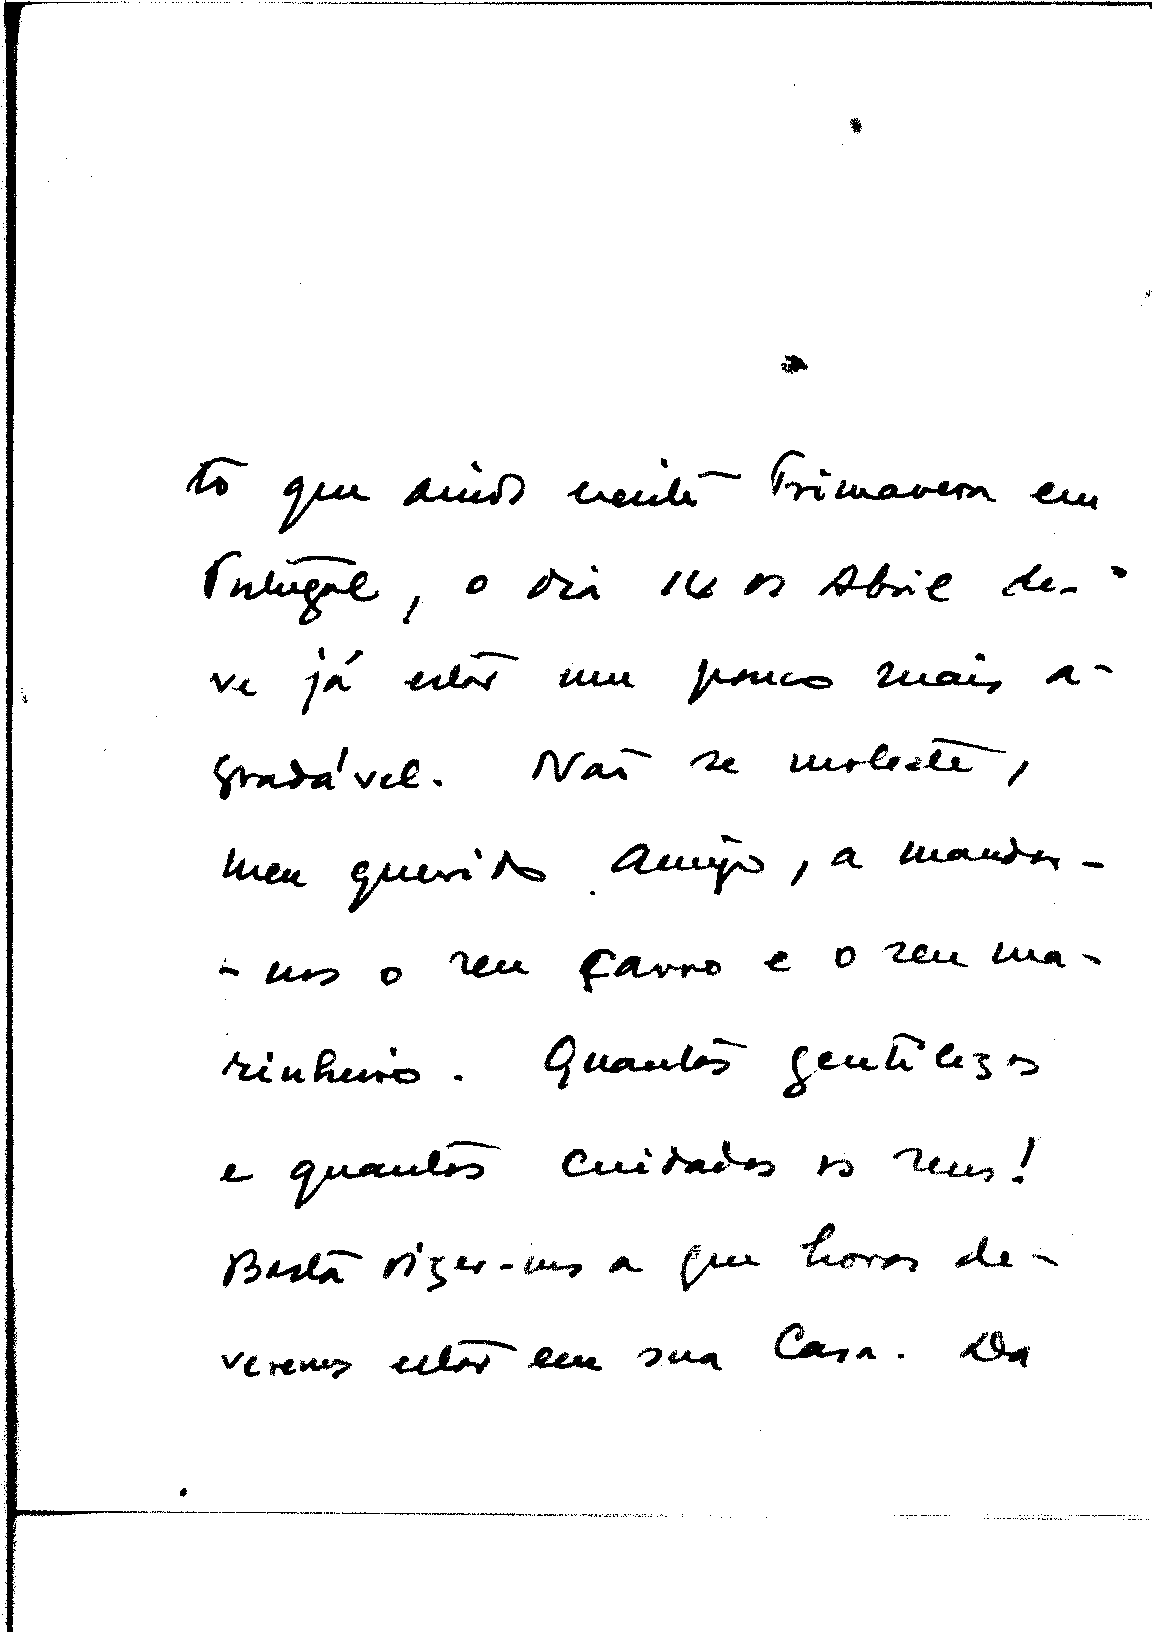 to que ainda existe Primavera em
Portugal, o dia 14 de Abril de-
ve já estar um pouco mais a-
gradável. Não se moleste,
meu querido Amigo, a mandar-
-nos o seu carro e o seu ma-
rinheiro. Quantas gentilezas
e quantos cuidados os seus!
Basta dizer-nos a que horas de-
veremos estar em sua Casa. Da